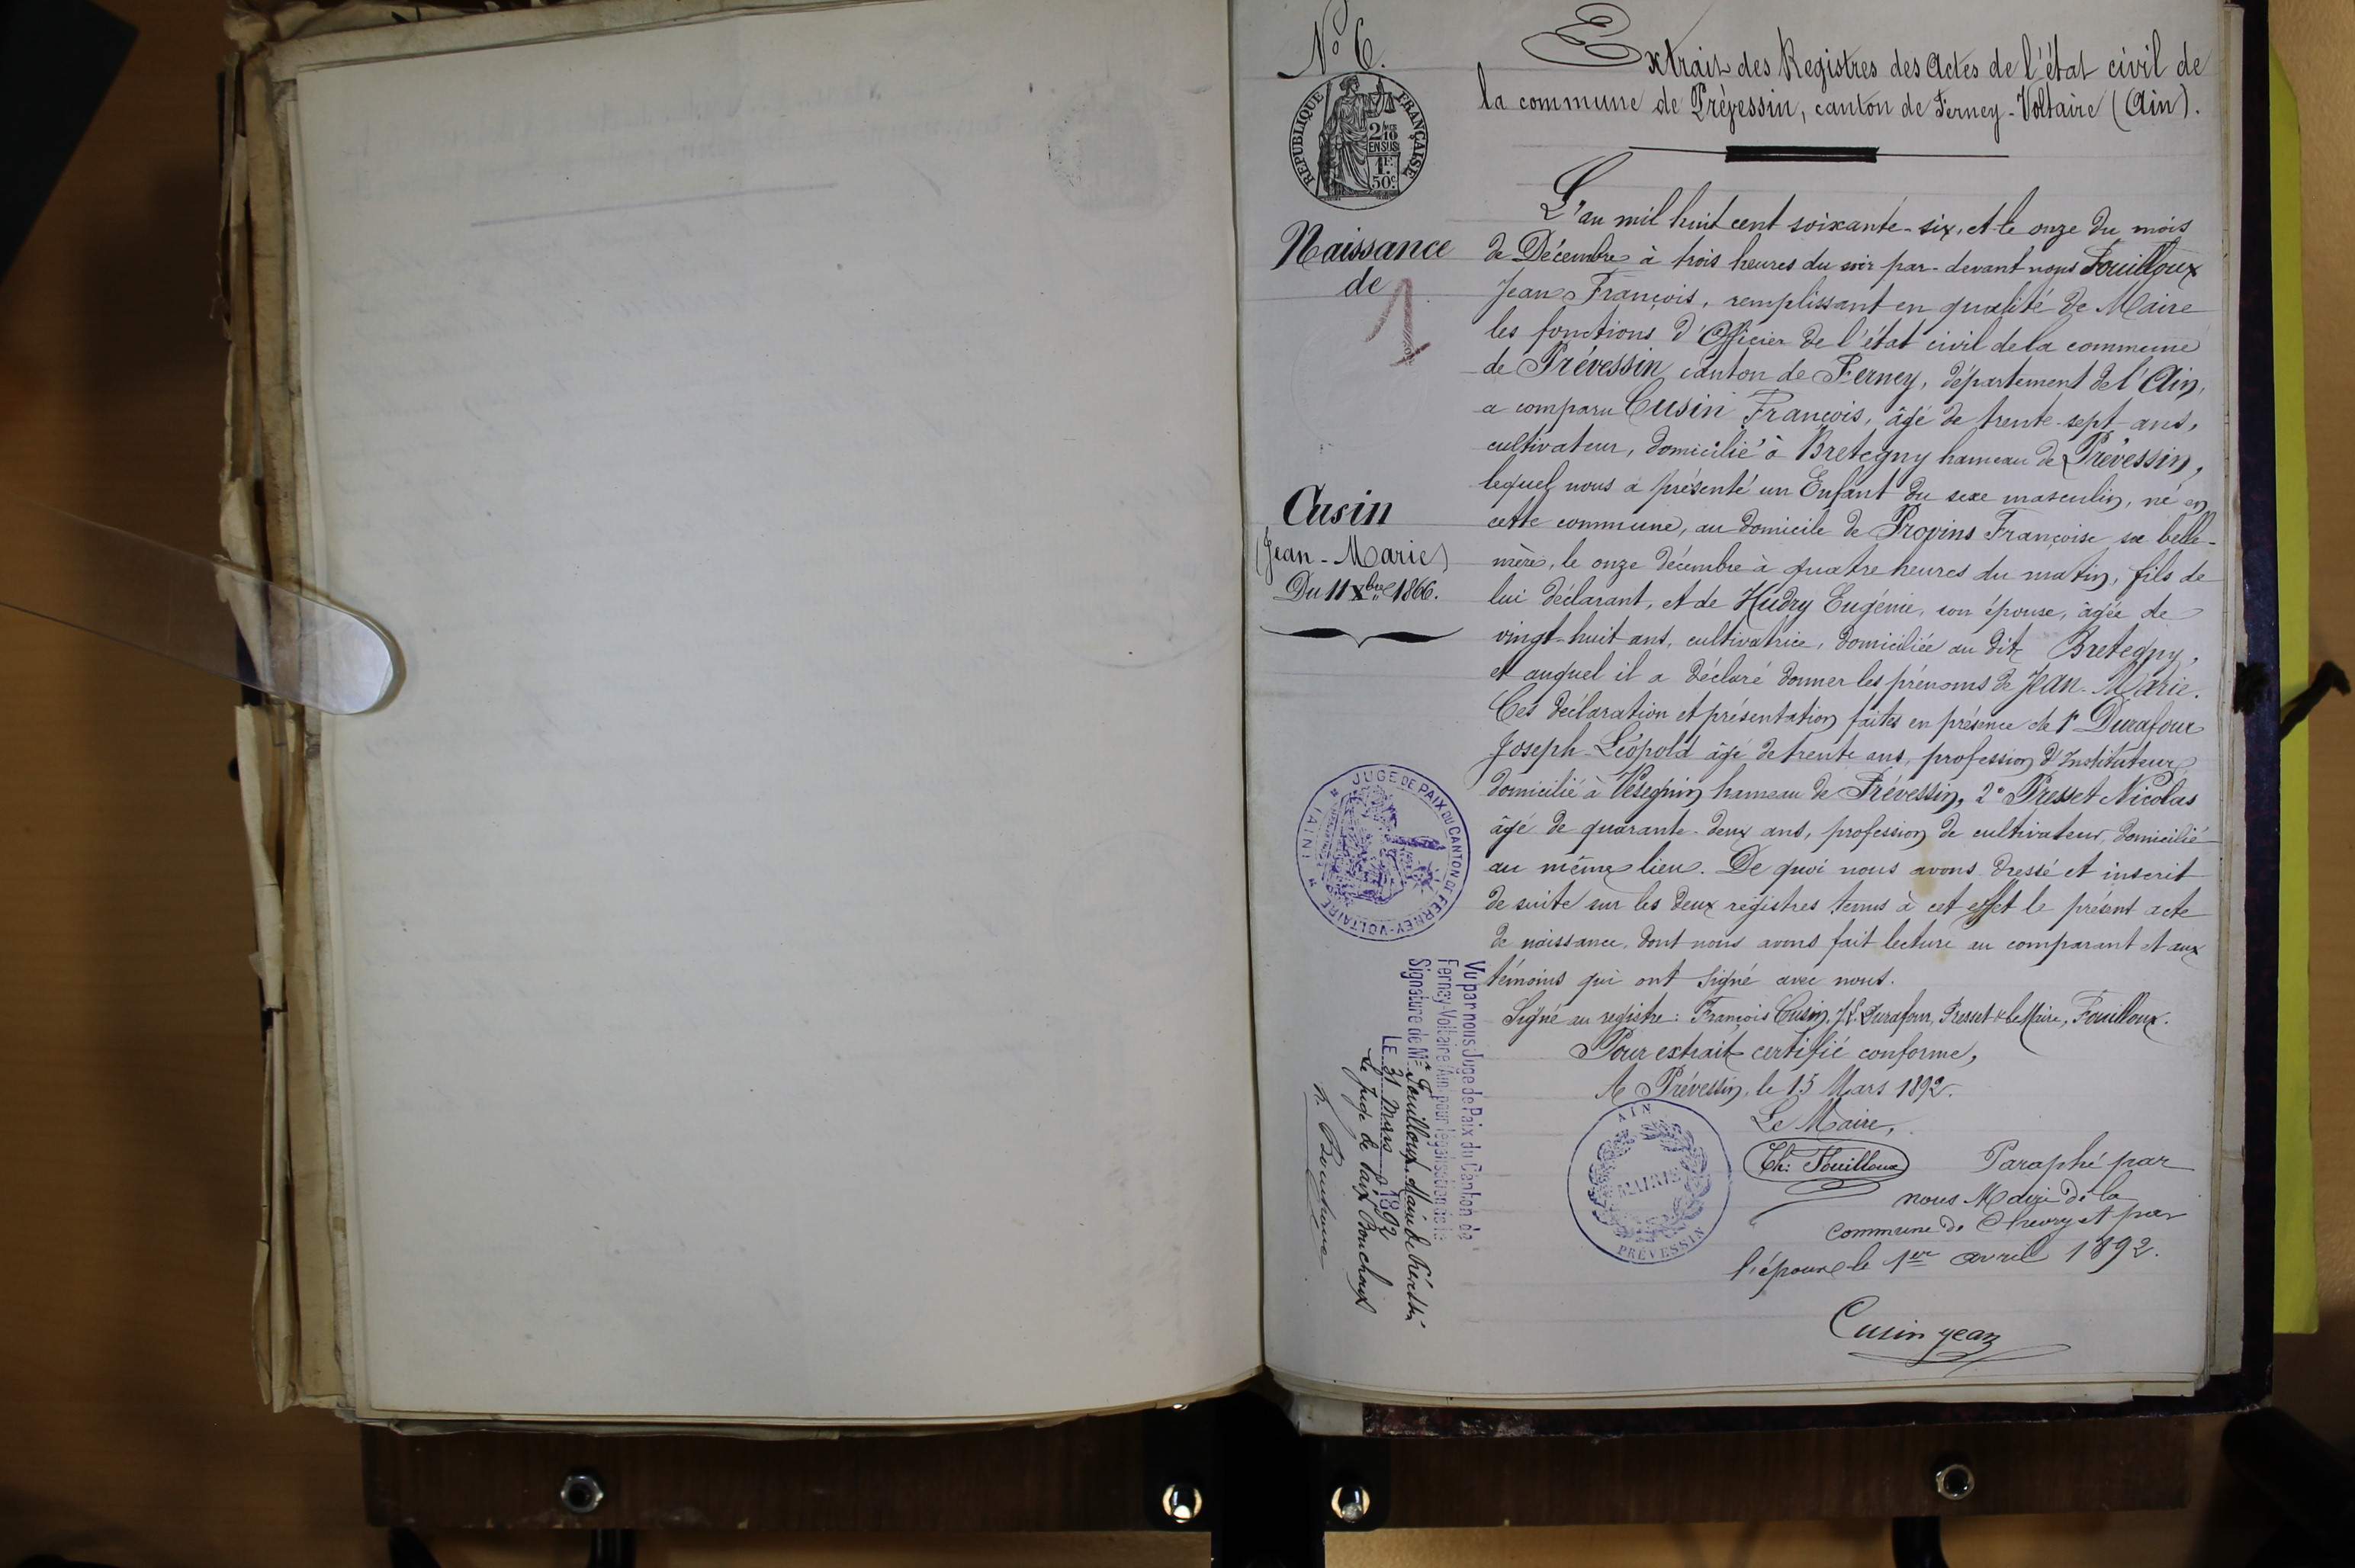 N° 6.
RÉPUBLIQUE FRANÇAISE
2/10
EN SUS
1F.
50c.
Naissance
de
1
Cusin
(Jean-Marie)
Du 11 Xbre 1866.
JUGE DE PAIX DU CANTON DE FERNEY-VOLTAIRE (AIN)
Vu par nous Juge de Paix du Canton de
Ferney-Voltaire (Ain) pour légalisation de la
Signature de Mr Fouilloux Maire de Prévessin
LE 31 Mars 1892
Le Juge de Paix Bouchoux
Extrait des Registres des Actes de l'état civil de
la commune de Prévessin, canton de Ferney-Voltaire (Ain).
L'an mil huit cent soixante-six, et le onze du mois
de Décembre à trois heures du soir par-devant nous Fouilloux
Jean François, remplissant en qualité de Maire
les fonctions d'Officier de l'état civil de la commune
de Prévessin, canton de Ferney, département de l'Ain,
a comparu Cusin François, âgé de trente-sept ans,
cultivateur, domicilié à Bretegny hameau de Prévessin,
lequel nous a présenté un Enfant du sexe masculin, né en
cette commune, au domicile de Provins Françoise sa belle-
mère, le onze décembre à quatre heures du matin, fils de
lui déclarant, et de Hudry Eugénie, son épouse, âgée de
vingt-huit ans, cultivatrice, domiciliée au dit Bretegny,
et auquel il a déclaré donner les prénoms de Jean-Marie.
Ces déclaration et présentation faites en présence de 1° Durafour
Joseph-Léopold âgé de trente ans, profession d'Instituteur,
domicilié à Vesegnin hameau de Prévessin, 2° Presset Nicolas
âgé de quarante-deux ans, profession de cultivateur, domicilié
au même lieu. De quoi nous avons dressé et inscrit
de suite sur les deux registres tenus à cet effet le présent acte
de naissance, dont nous avons fait lecture au comparant et aux
témoins qui ont signé avec nous.
Signé au registre: François Cusin, J.L. Durafour, Presset & le Maire, Fouilloux.
Pour extrait certifié conforme,
A Prévessin, le 15 Mars 1892.
Le Maire,
Ch: Fouilloux
AIN
MAIRIE
PRÉVESSIN
Paraphé par
nous Maire de la
commune de Chevry et par
l'époux le 1er avril 1892.
Cusin jean